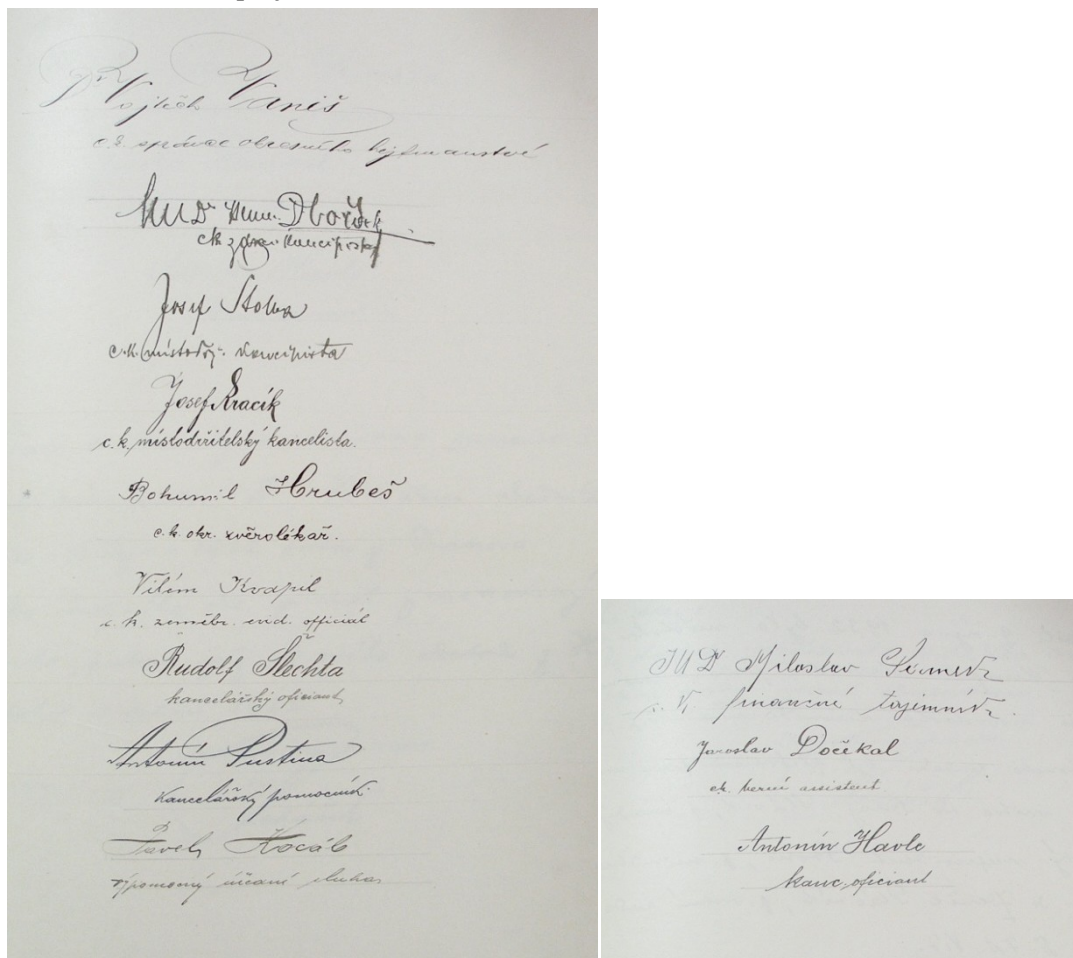 Vojtěch Vaniš
c. k. správce okresního hejtmanství
MUDr Dvořák
ck zdrav. koncipista
Josef Stolba
c. k. místodrž. koncipista
Josef Kracík
c. k. místodržitelský kancelista.
Bohumil Hrubeš
c. k. okr. zvěrolékař.
Vilém Kvapil
c. k. zeměbr. evid. officiál
Rudolf Šlechta
kancelářský oficiant
Antonín Pustina
kancelářský pomocník.
Pavel Kocáb
výpomocný úřední sluha
JUDr Miloslav
c. k. finanční tajemník.
Jaroslav Dočekal
ck. berní assistent
Antonín Havle
kanc. oficiant